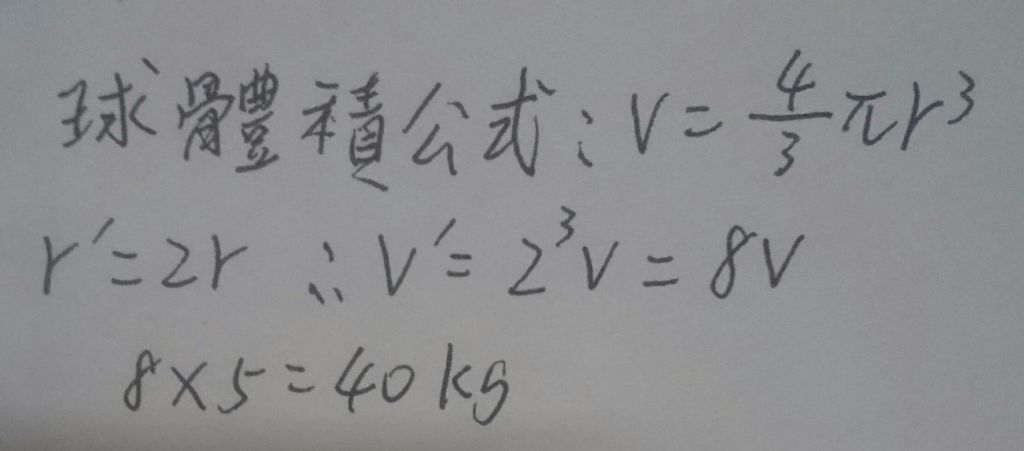 球體積公式：V = 4/3 πr³
r′ = 2r ∴ V′ = 2³V = 8V
8×5 = 40 kg